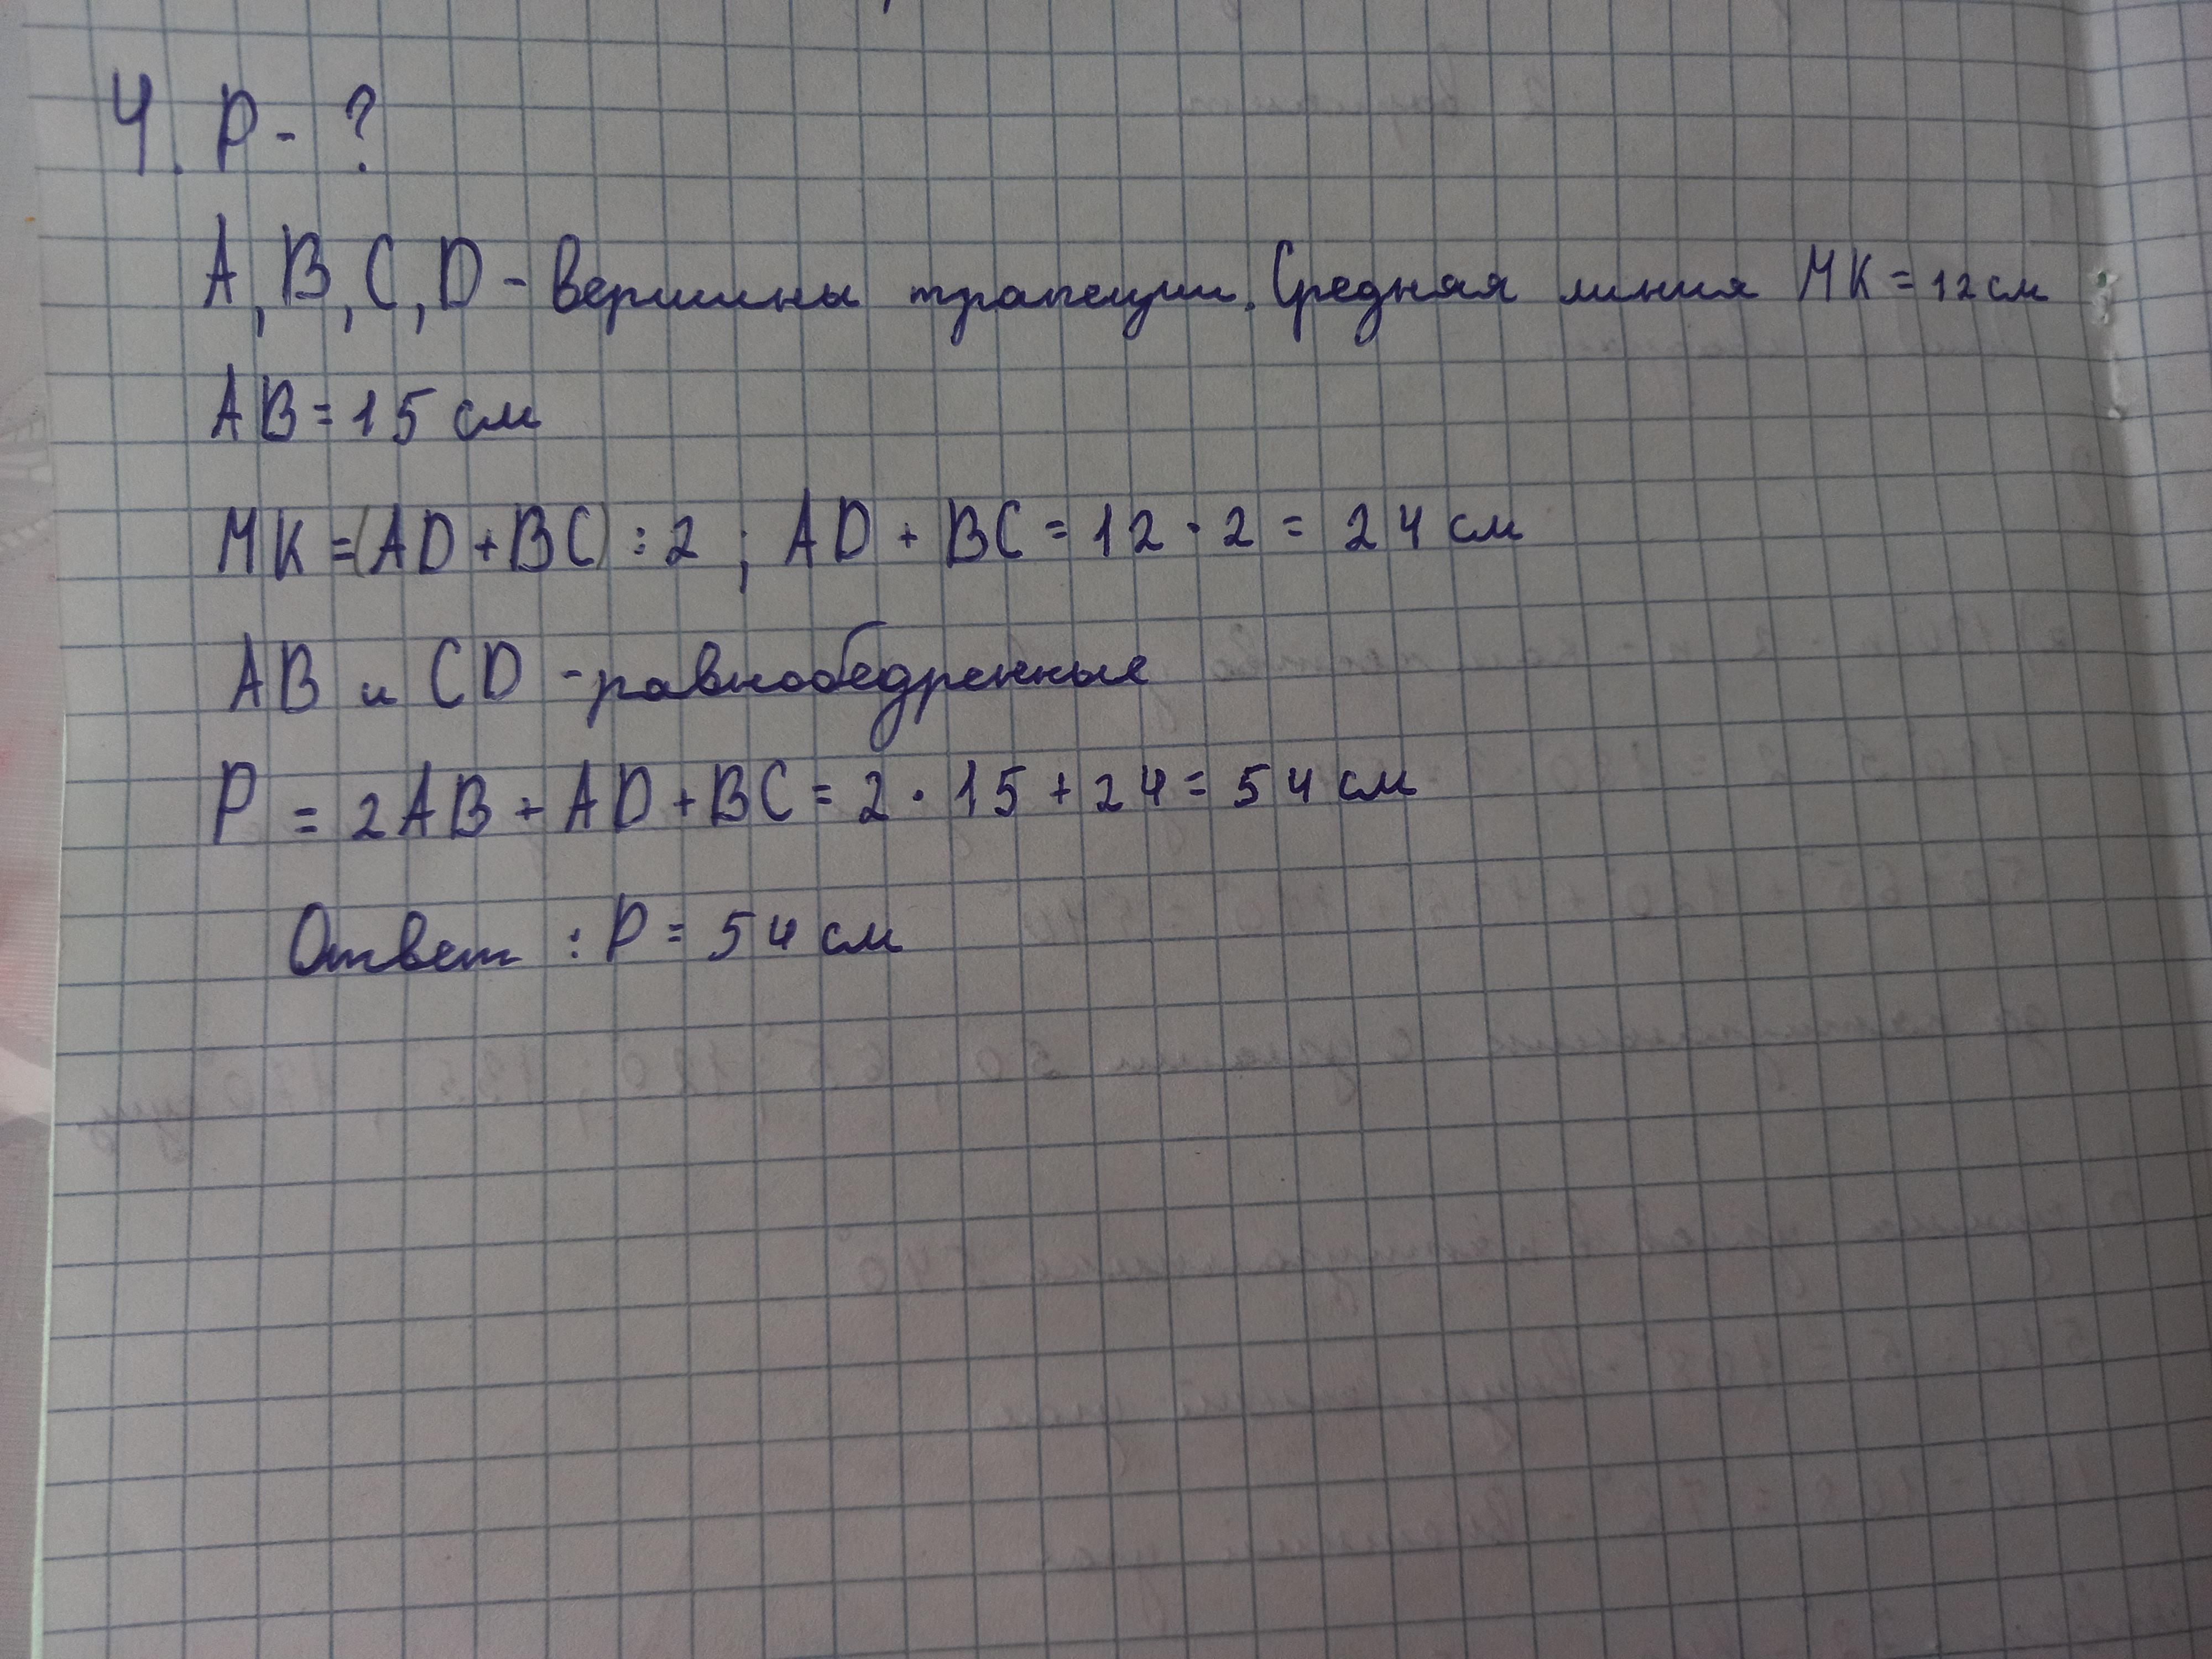 4. P - ?
A, B, C, D - вершины трапеции. Средняя линия MK = 12 см
AB = 15 см
MK = (AD + BC) : 2 ; AD + BC = 12 · 2 = 24 см
AB и CD - равнобедренные
P = 2AB + AD + BC = 2 · 15 + 24 = 54 см
Ответ : P = 54 см